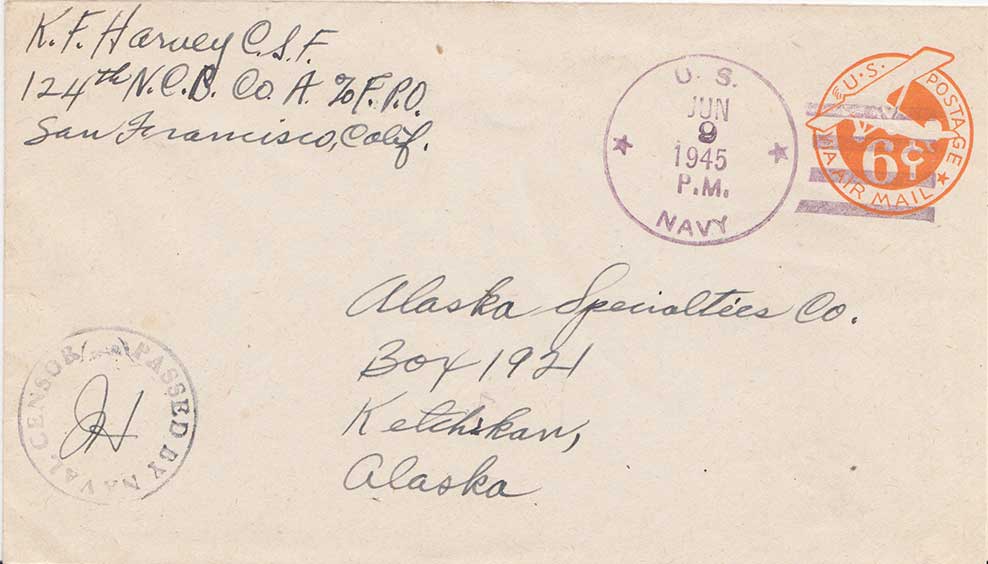 K. F. Harvey C.S.F.
124th N.C.B. Co. A. % F.P.O.
San Francisco, Calif.
U. S.
JUN
9
1945
P.M.
NAVY
U.S. POSTAGE
6¢
VIA AIR MAIL
Alaska Specialties Co.
Box 1921
Ketchikan,
Alaska
PASSED BY NAVAL CENSOR
JH